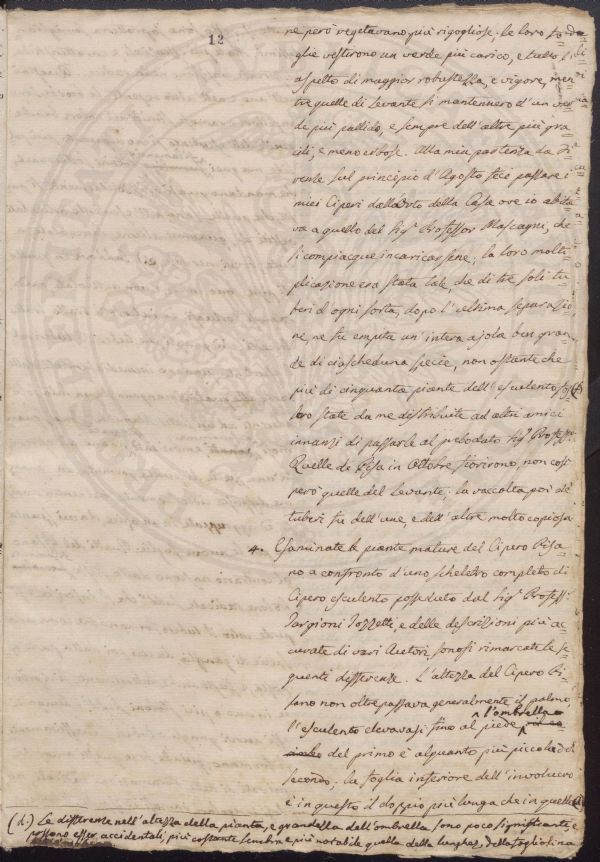 12
ne però vegetavano più rigogliose: le loro fo=
glie vestirono un verde più carico, e tutto l'
aspetto di maggior robustezza, e vigore, men
tre quelle di Levante si mantennero d'un ver
de più pallido, e sempre dell'altre più gra
cili, e meno erbose. Alla mia partenza da Fi
renze sul principio d'Agosto feci passare i
miei Ciperi dall'Orto della Casa ove io abita
va a quello del Sig.r Professor Mascagni, che
si compiacque incaricarsene; la loro molti
plicazione era stata tale, che di tre soli tu
beri d'ogni sorta, dopo l'ultima separazio
ne, ne fu empita un'intera ajola ben gran
de di ciascheduna specie, non ostante che
più di cinquanta piante dell'esculento fos
sero state da me distribuite ad altri amici
innanzi di passarle al prelodato Sig.r Profess.r
Quelle di Pisa in Ottobre fiorirono, non così
però quelle del Levante; la raccolta poi de'
tuberi fu dell'une, e dell'altre molto copiosa
4. Esaminate le piante mature del Cipero Pisa
no a confronto d'uno scheletro completo di
Cipero esculento posseduto dal Sig.r Profess.r
Targioni Tozzetti, e delle descrizioni più ac
curate di vari Autori, sonosi rimarcate le se
guenti differenze. L'altezza del Cipero Pi
sano non oltrepassava generalmente il palmo,
l'esculento elevavasi fino al piede, l'ombrella
del primo è alquanto più piccola del
secondo; la foglia inferiore dell'involucro
è in questo il doppio più lunga che in quello (d)
(d.) Le differenze nell'altezza della pianta, e grandezza dell'ombrella sono poco significanti, e
possono esser accidentali; più costante sembra e più notabile quella della lunghez. della fogliolina